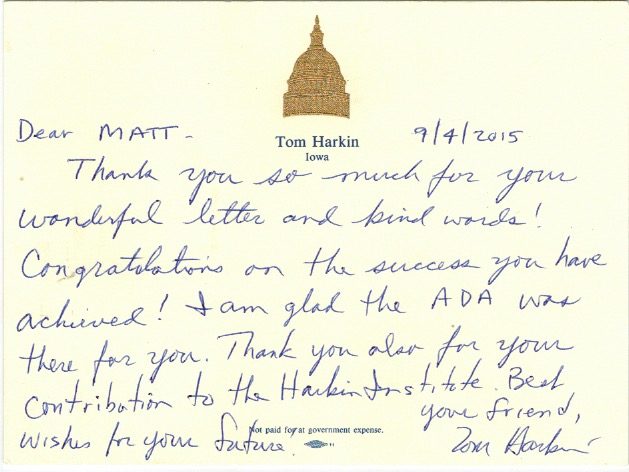 Tom Harkin
Iowa
Dear MATT - 9/4/2015
Thank you so much for your
wonderful letter and kind words!
Congratulations on the success you have
achieved! I am glad the ADA was
there for you. Thank you also for your
contribution to the Harkin Institute. Best
wishes for your future.
your friend,
Tom Harkin
Not paid for at government expense.